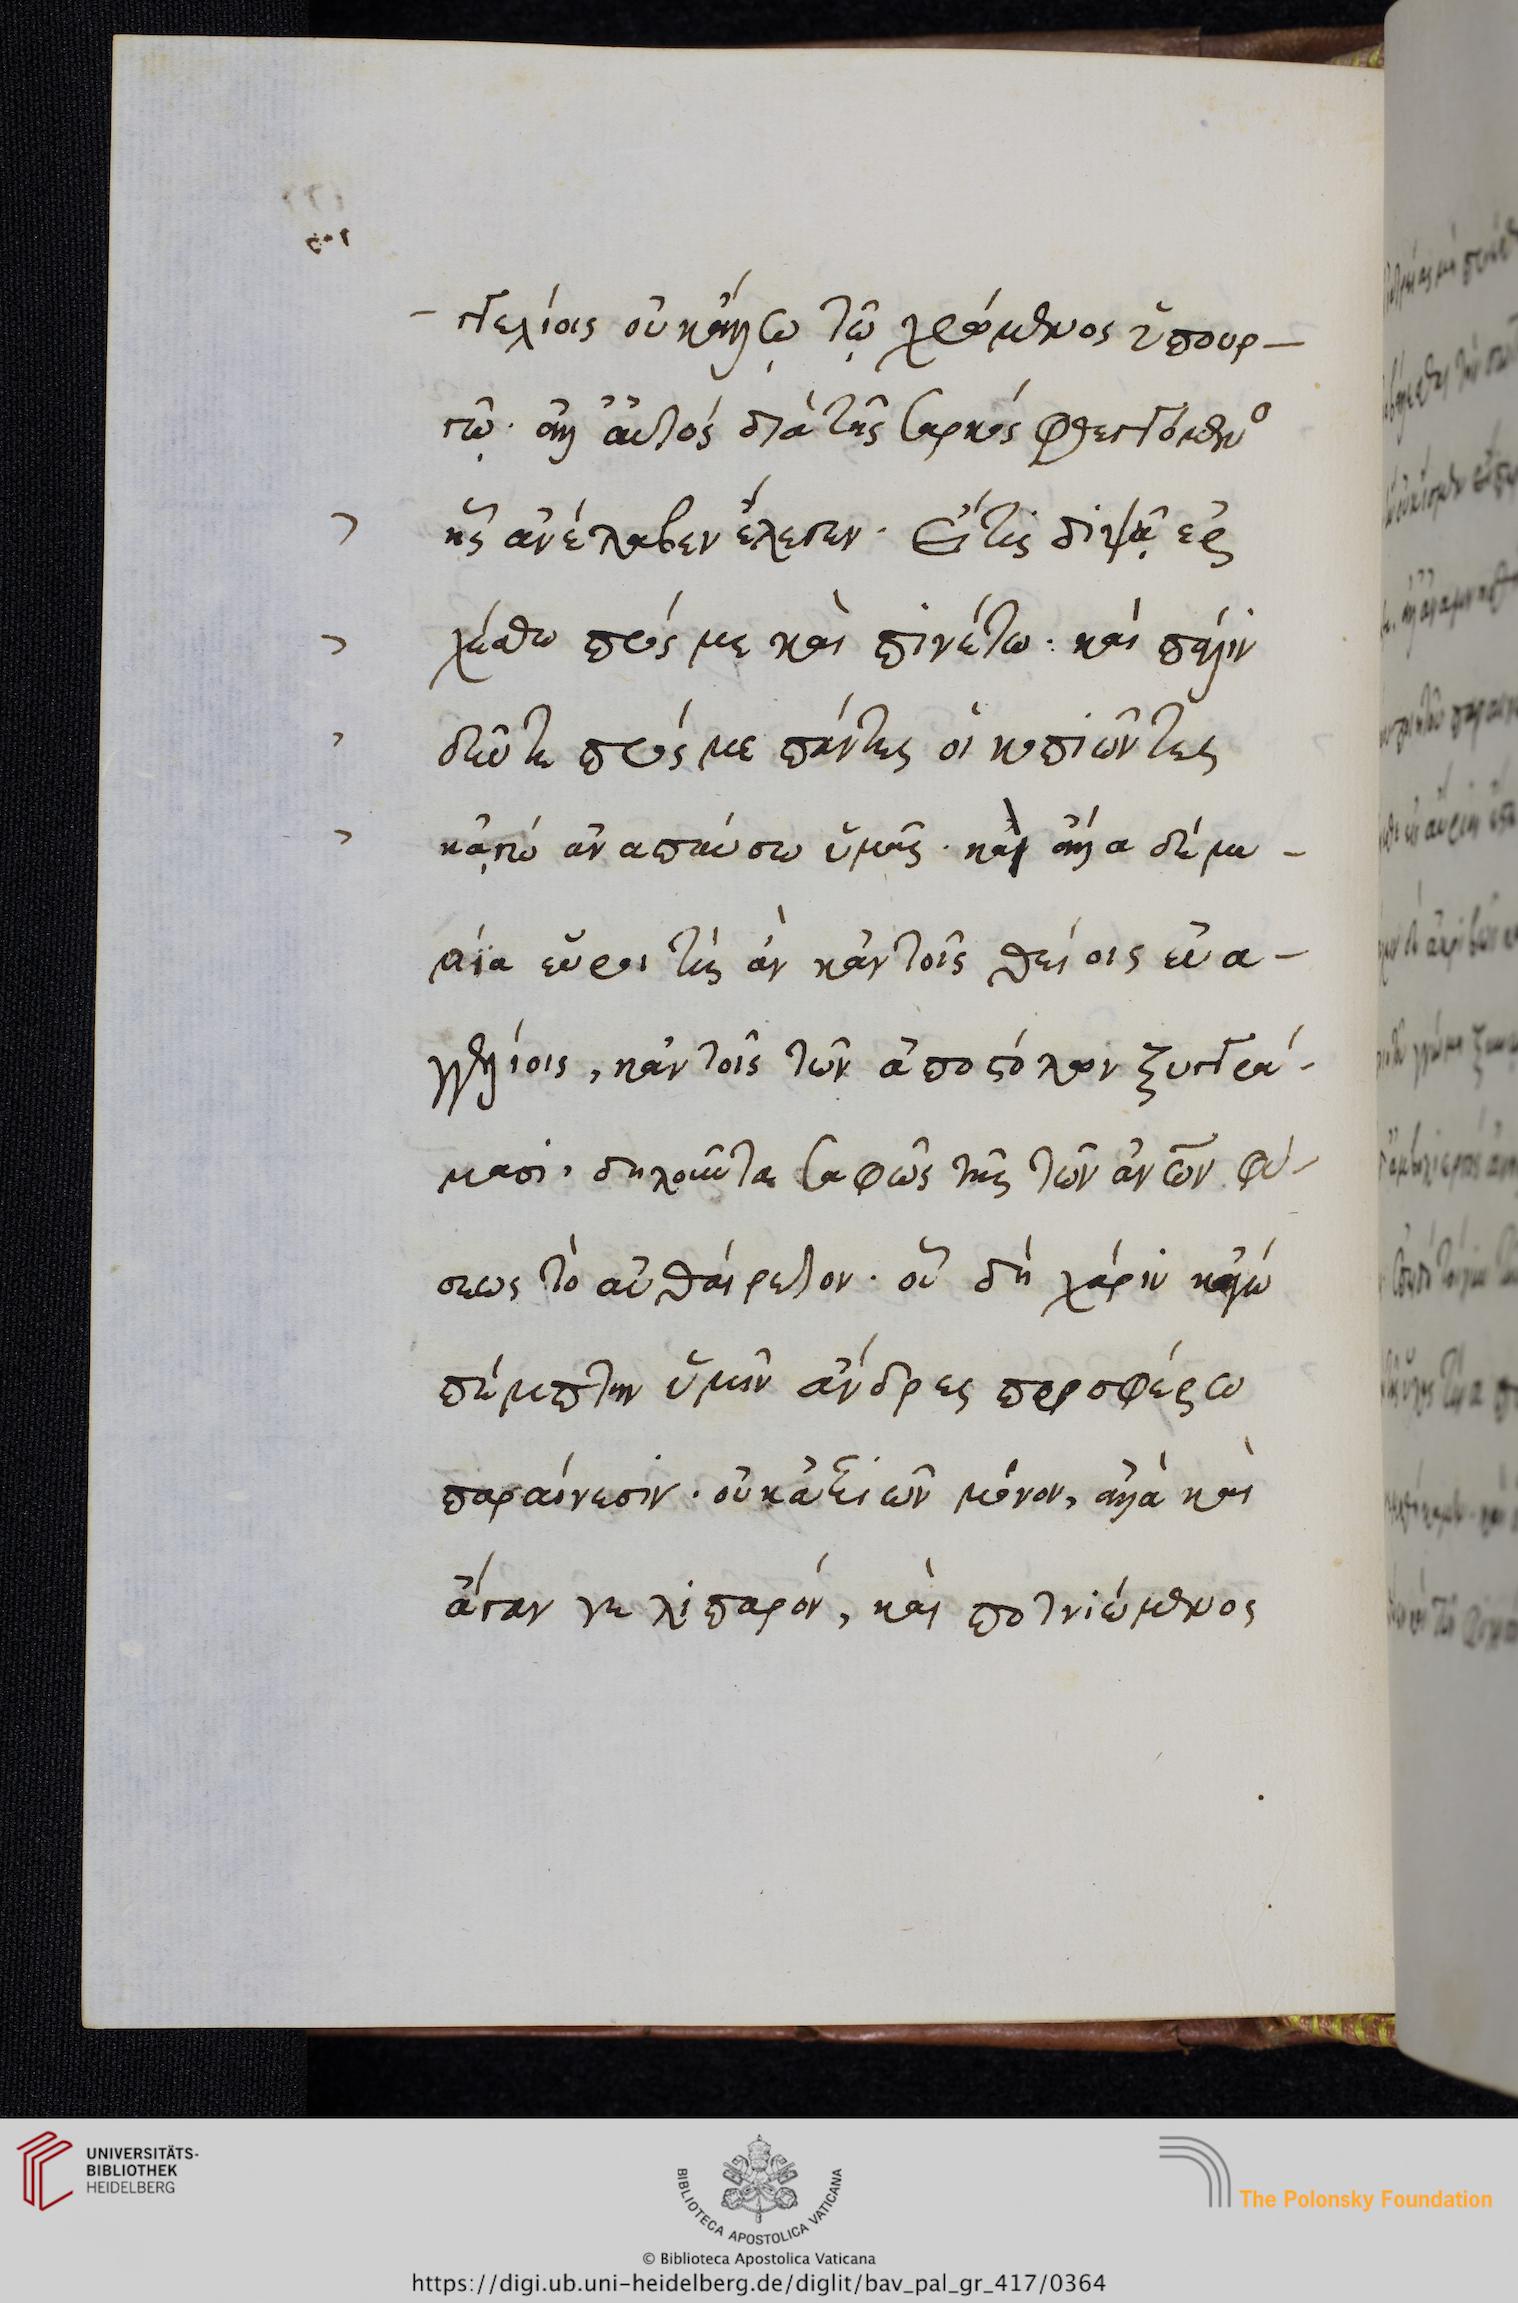 γγελίοις οὐκ ἄλλῳ τῳ χρώμενος ὑπουρ-
γῷ· ἀλλ' αὐτὸς διὰ τῆς σαρκὸς φθεγγόμενο
ἧς ἀνέλαβεν ἔλεγεν· Εἴ τις διψᾷ ἐρ
χέσθω πρός με καὶ πινέτω· καὶ πάλιν
δεῦτε πρός με πάντες οἱ κοπιῶντες
κᾀγώ ἀναπαύσω ὑμᾶς· καὶ ἄλλα δέ μυ-
ρία εὕροι τίς ἂν κἀν τοῖς θείοις εὐα-
γγελίοις, κἀν τοῖς τῶν ἀποστόλων ξυγγρά-
μασι, δηλοῦντα σαφῶς τῆς τῶν ἀνων φύ-
σεως τὸ αὐθαίρετον· οὗ δὴ χάριν κᾀγώ
πέμπτην ὑμῖν ἄνδρες προσφέρω
παραίνεσιν· οὐκ ἀξιῶν μόνον, ἀλλὰ καὶ
ἄγαν γε λιπαρῶν, καὶ ποτνιώμενος
UNIVERSITÄTS-
BIBLIOTHEK
HEIDELBERG
BIBLIOTECA APOSTOLICA VATICANA
The Polonsky Foundation
© Biblioteca Apostolica Vaticana
https://digi.ub.uni-heidelberg.de/diglit/bav_pal_gr_417/0364